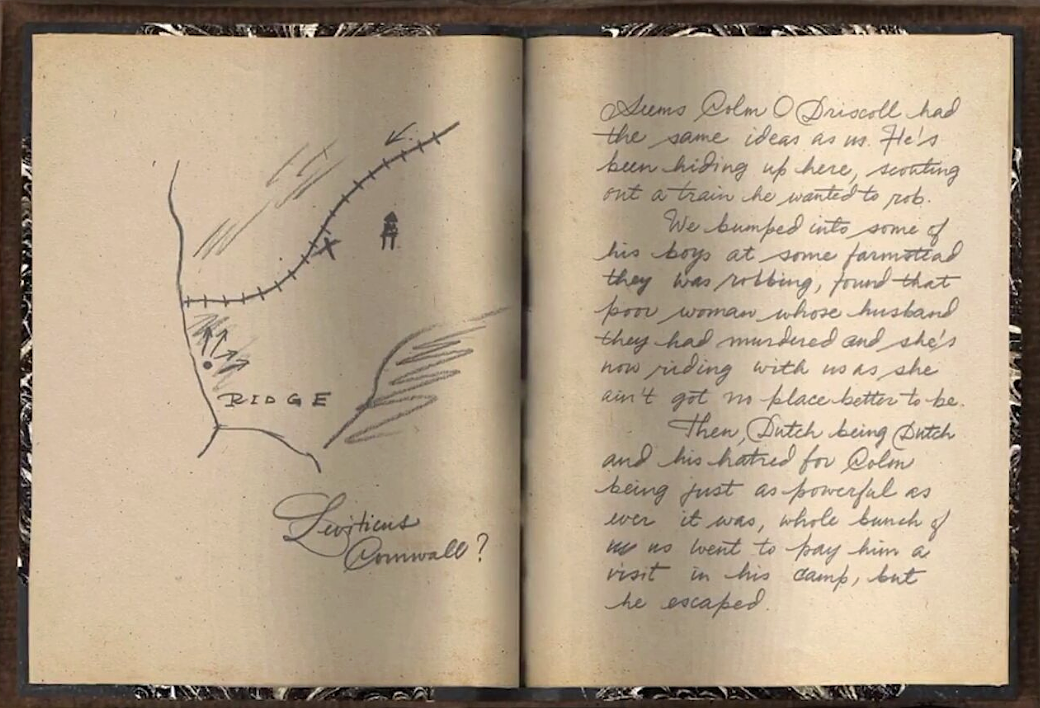 RIDGE
Leviticus
Cornwall?
Seems Colm O Driscoll had
the same ideas as us. He's
been hiding up here, scouting
out a train he wanted to rob.
We bumped into some of
his boys at some farmstead
they was robbing, found that
poor woman whose husband
they had murdered and she's
now riding with us as she
ain't got no place better to be.
Then, Dutch being Dutch
and his hatred for Colm
being just as powerful as
ever it was, whole bunch of
us went to pay him a
visit in his camp, but
he escaped.